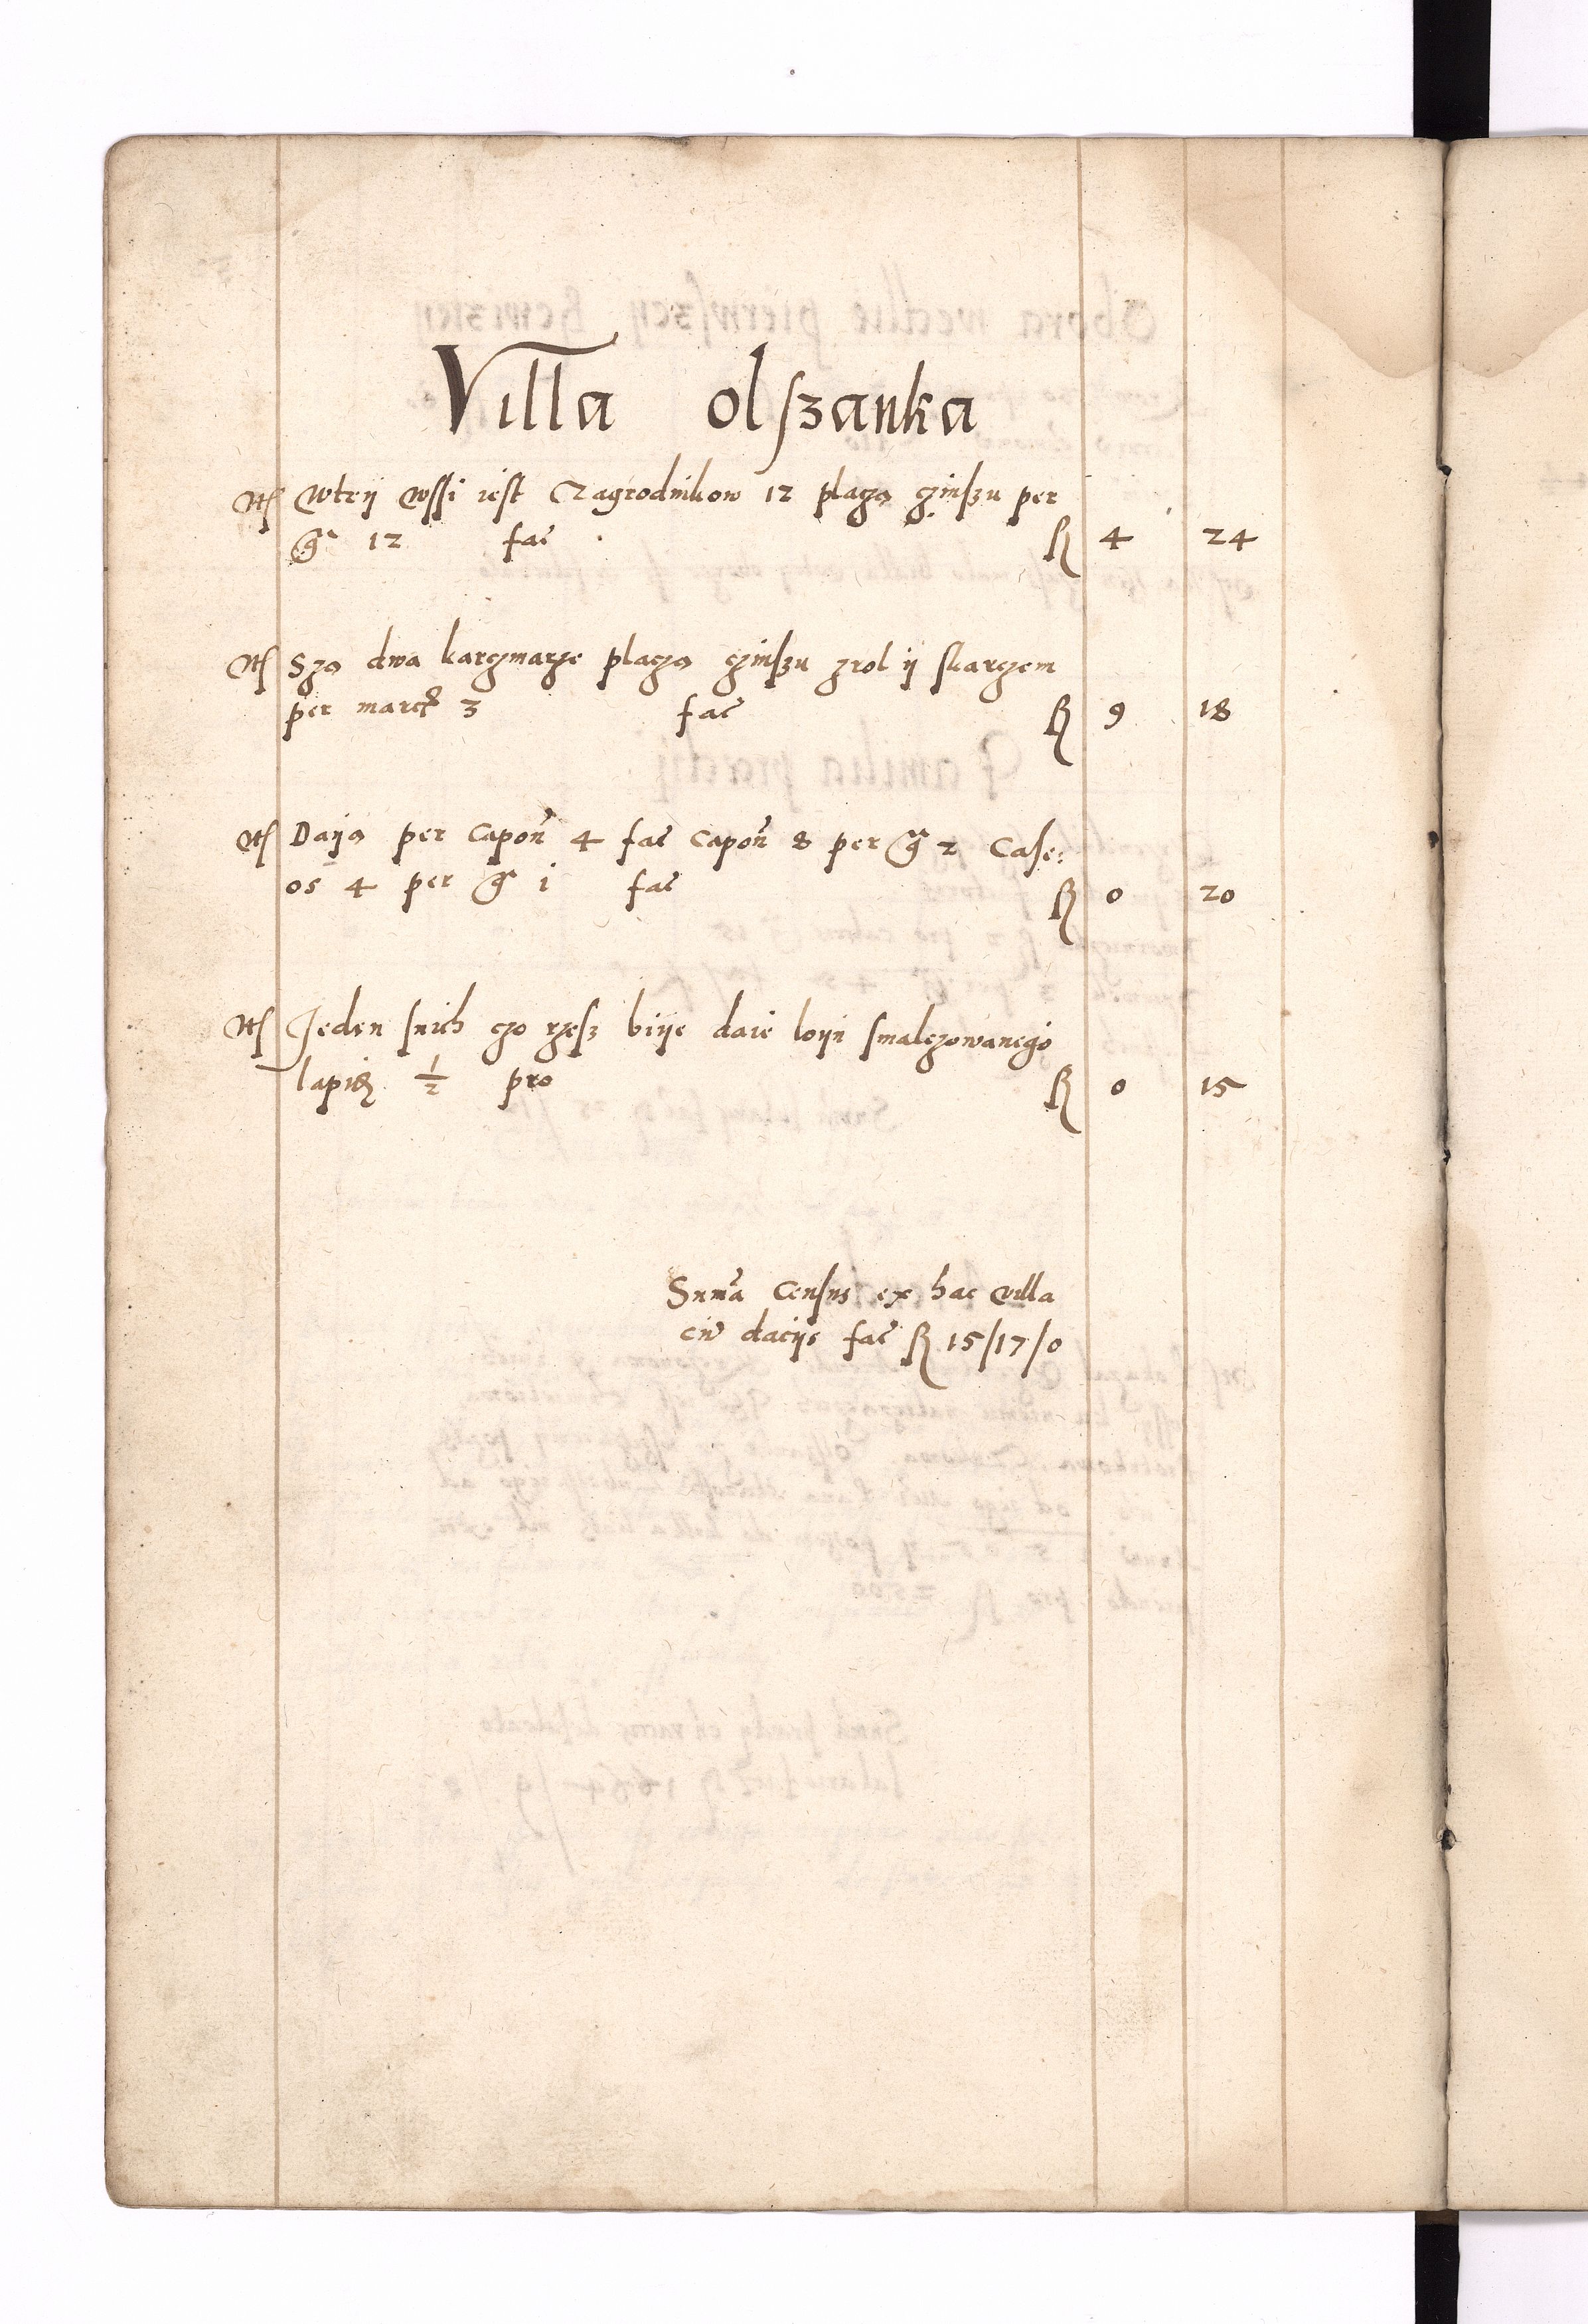 Villa olszanka
Itē Wtey Wssi iest Czagrodnikow 12 placzą czinszu per
gr 12 fac̄ fl 4 24
Itē Szą dwa karczmarze placzą czinszu zrol ij skarczem
per marck 3 fac̄ fl 9 18
Itē Daiją per Capoñ 4 fac̄ Capoñ 8 per gr 2 Case:
os 4 per gr 1 fac̄ fl 0 20
Itē Jeden snich czo rzesz biije daie loijū smalczowanego
lapidē ½ pro fl 0 15
Sum̄a Census ex hac villa
cū dacijs fac̄ fl 15/17/0